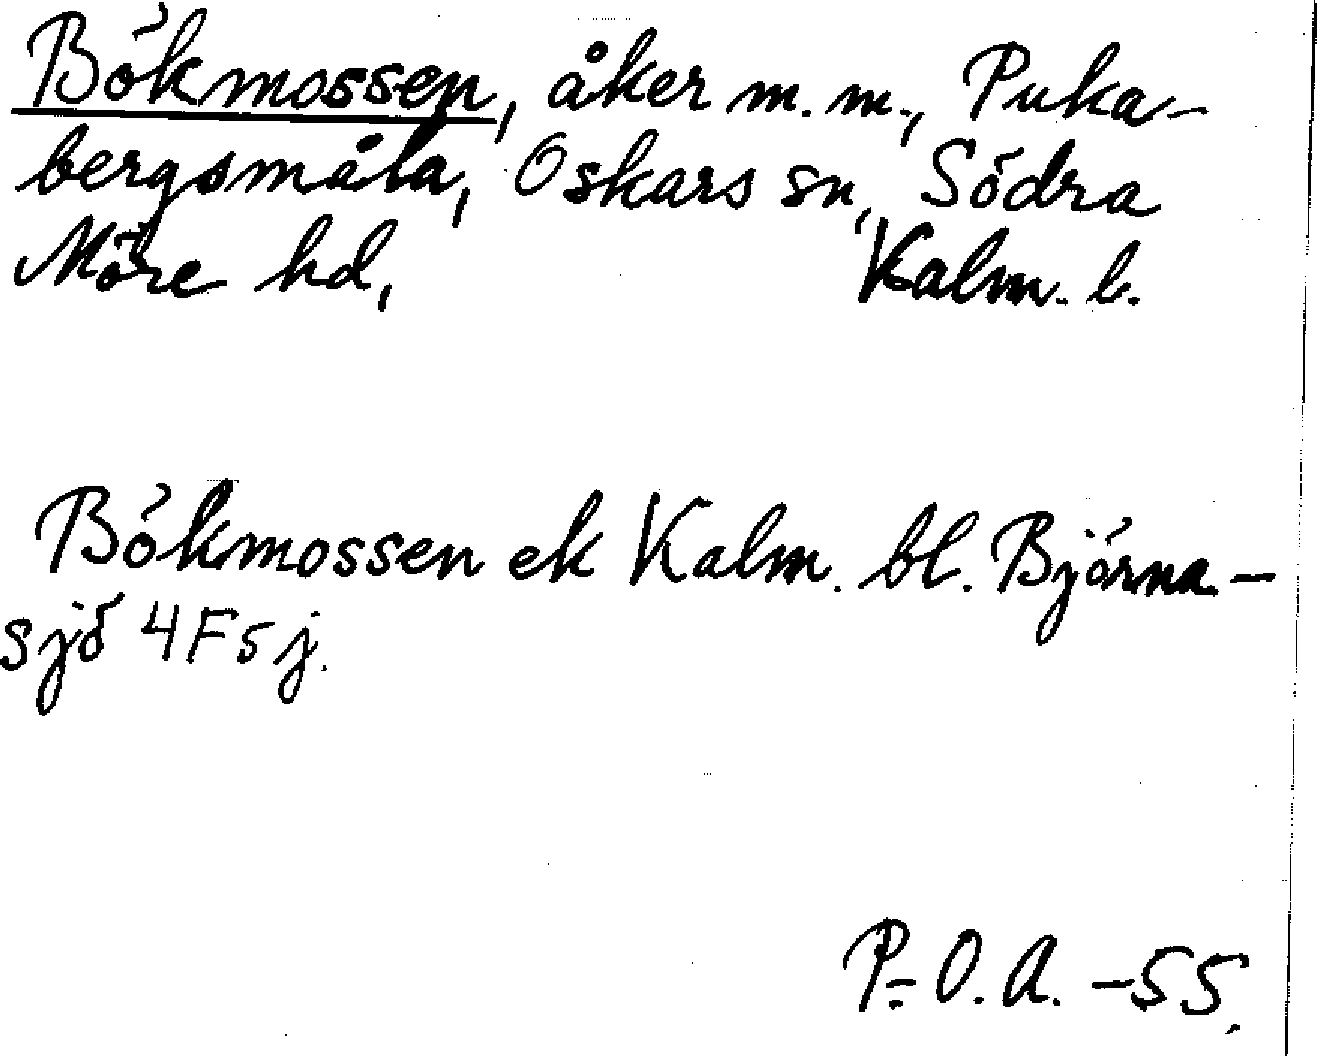 Bökmossen, åker m.m., Puka-
bergsmåla, Oskars sn, Södra
Möre hd, Kalm. l.
Bökmossen ek Kalm. bl. Björna-
sjö 4F5j.
P.-O.A. -55.